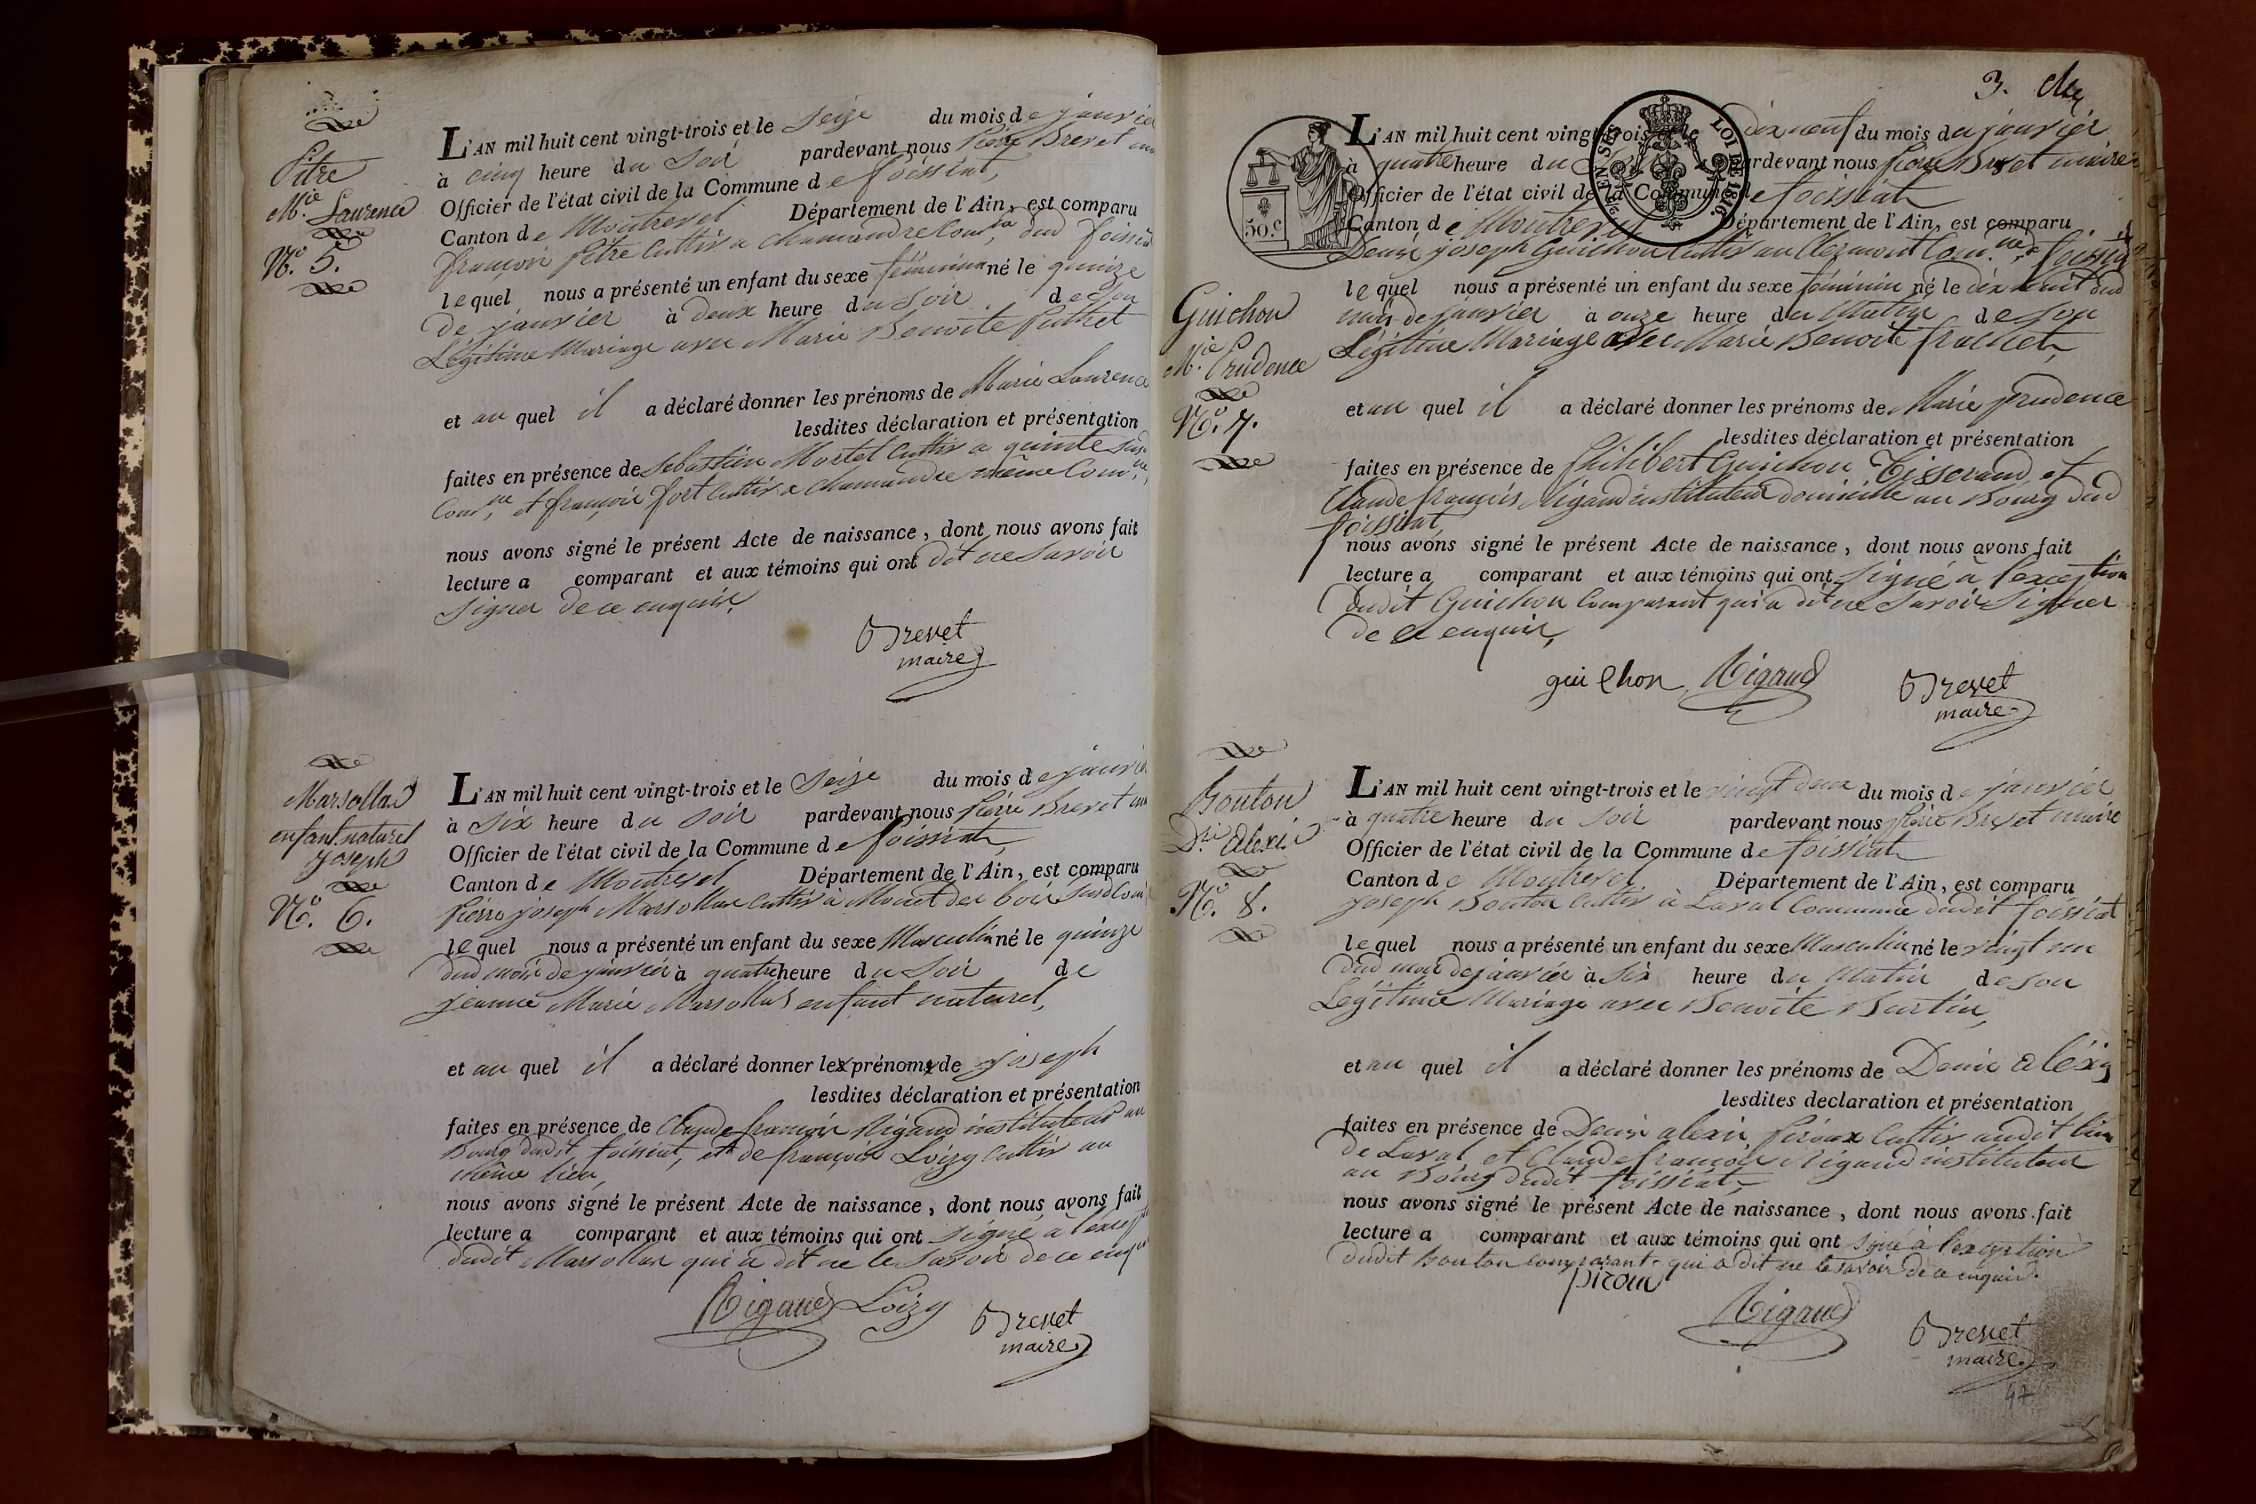 Pitre
M.ie Laurence
N.o 5.
L'AN mil huit cent vingt-trois et le Seize du mois de janvier
à cinq heure du Soir pardevant nous Pierre Brevet
Officier de l'état civil de la Commune de foissiat,
Canton de Montrevel Département de l'Ain, est comparu
françois Pitre Cultiv. a chamandre dud foissiat
lequel nous a présenté un enfant du sexe féminin né le quinze
de janvier à deux heure du Soir de son
Légitime Mariage avec Marie Benoite
et au quel il a déclaré donner les prénoms de Marie Laurence
lesdites déclaration et présentation
faites en présence de Sebastien Mortel Cultiv. a quinte Susd
Com.ne et françois fort Cultiv. a Chamandre même Com.ne,
nous avons signé le présent Acte de naissance, dont nous avons fait
lecture a comparant et aux témoins qui ont dit ne Savoir
Signer de ce enquis.
Brevet
maire
Marsollat
enfant naturel
joseph
N.o 6.
L'AN mil huit cent vingt-trois et le Seize du mois de janvier
à Six heure du Soir pardevant nous Pierre Brevet
Officier de l'état civil de la Commune de foissiat,
Canton de Montrevel Département de l'Ain, est comparu
Pierre joseph Marsollat Cultiv. à Monet du bois Susd Com
lequel nous a présenté un enfant du sexe Masculin né le quinze
dud mois de janvier à quatre heure du Soir de
jeanne Marie Marsollat enfant naturel,
et au quel il a déclaré donner les prénoms de joseph
lesdites déclaration et présentation
faites en présence de Claude françois Rigaud instituteur au
Bourg dudit foissiat, et de françois Loizy Cultiv. au
même lieu,
nous avons signé le présent Acte de naissance, dont nous avons fait
lecture a comparant et aux témoins qui ont signé à l'except
dudit Marsollat qui a dit ne le Savoir de ce enquis
Rigaud Loizy Brevet
maire
3.
50.c
EN SUS
LOI DE 1816.
Guichon
M.ie Prudence
N.o 7.
L'AN mil huit cent vingt-trois et le dix neuf du mois de janvier
à quatre heure du pardevant nous Pierre Brevet maire
Officier de l'état civil de la Commune de foissiat
Canton de Montrevel Département de l'Ain, est comparu
Denis joseph Guichon Cultiv. au Clermont Com.ne de foissiat
lequel nous a présenté un enfant du sexe féminin né le dix huit dud
mois de janvier à onze heure du Matin de son
Légitime Mariage avec Marie Benoite
et au quel il a déclaré donner les prénoms de Marie prudence
lesdites déclaration et présentation
faites en présence de Philibert Guichon Tisserand, et
Claude françois Rigaud instituteur domicilié au Bourg dud
foissiat,
nous avons signé le présent Acte de naissance, dont nous avons fait
lecture a comparant et aux témoins qui ont Signé à l'exception
dudit Guichon Comparant qui a dit ne Savoir Signer
de ce enquis,
guichon Rigaud Brevet
maire
Bouton
D.is Alexis
N.o 8.
L'AN mil huit cent vingt-trois et le vingt deux du mois de janvier
à quatre heure du Soir pardevant nous Pierre Brevet maire
Officier de l'état civil de la Commune de foissiat
Canton de Montrevel Département de l'Ain, est comparu
joseph Bouton Cultiv. à Laval Commune dudit foissiat
lequel nous a présenté un enfant du sexe Masculin né le vingt un
dud mois de janvier à Six heure du Matin de son
Légitime Mariage avec Benoite Burtin,
et au quel il a déclaré donner les prénoms de Denis alexis
lesdites declaration et présentation
faites en présence de Denis alexis Piroux Cultiv. audit lieu
de Laval et Claude françois Rigaud instituteur
au Bourg dudit foissiat,
nous avons signé le présent Acte de naissance, dont nous avons fait
lecture a comparant et aux témoins qui ont signé à l'exception
dudit bouton comparant qui a dit ne le savoir de ce enquis.
piroux
Rigaud
Brevet
maire
47